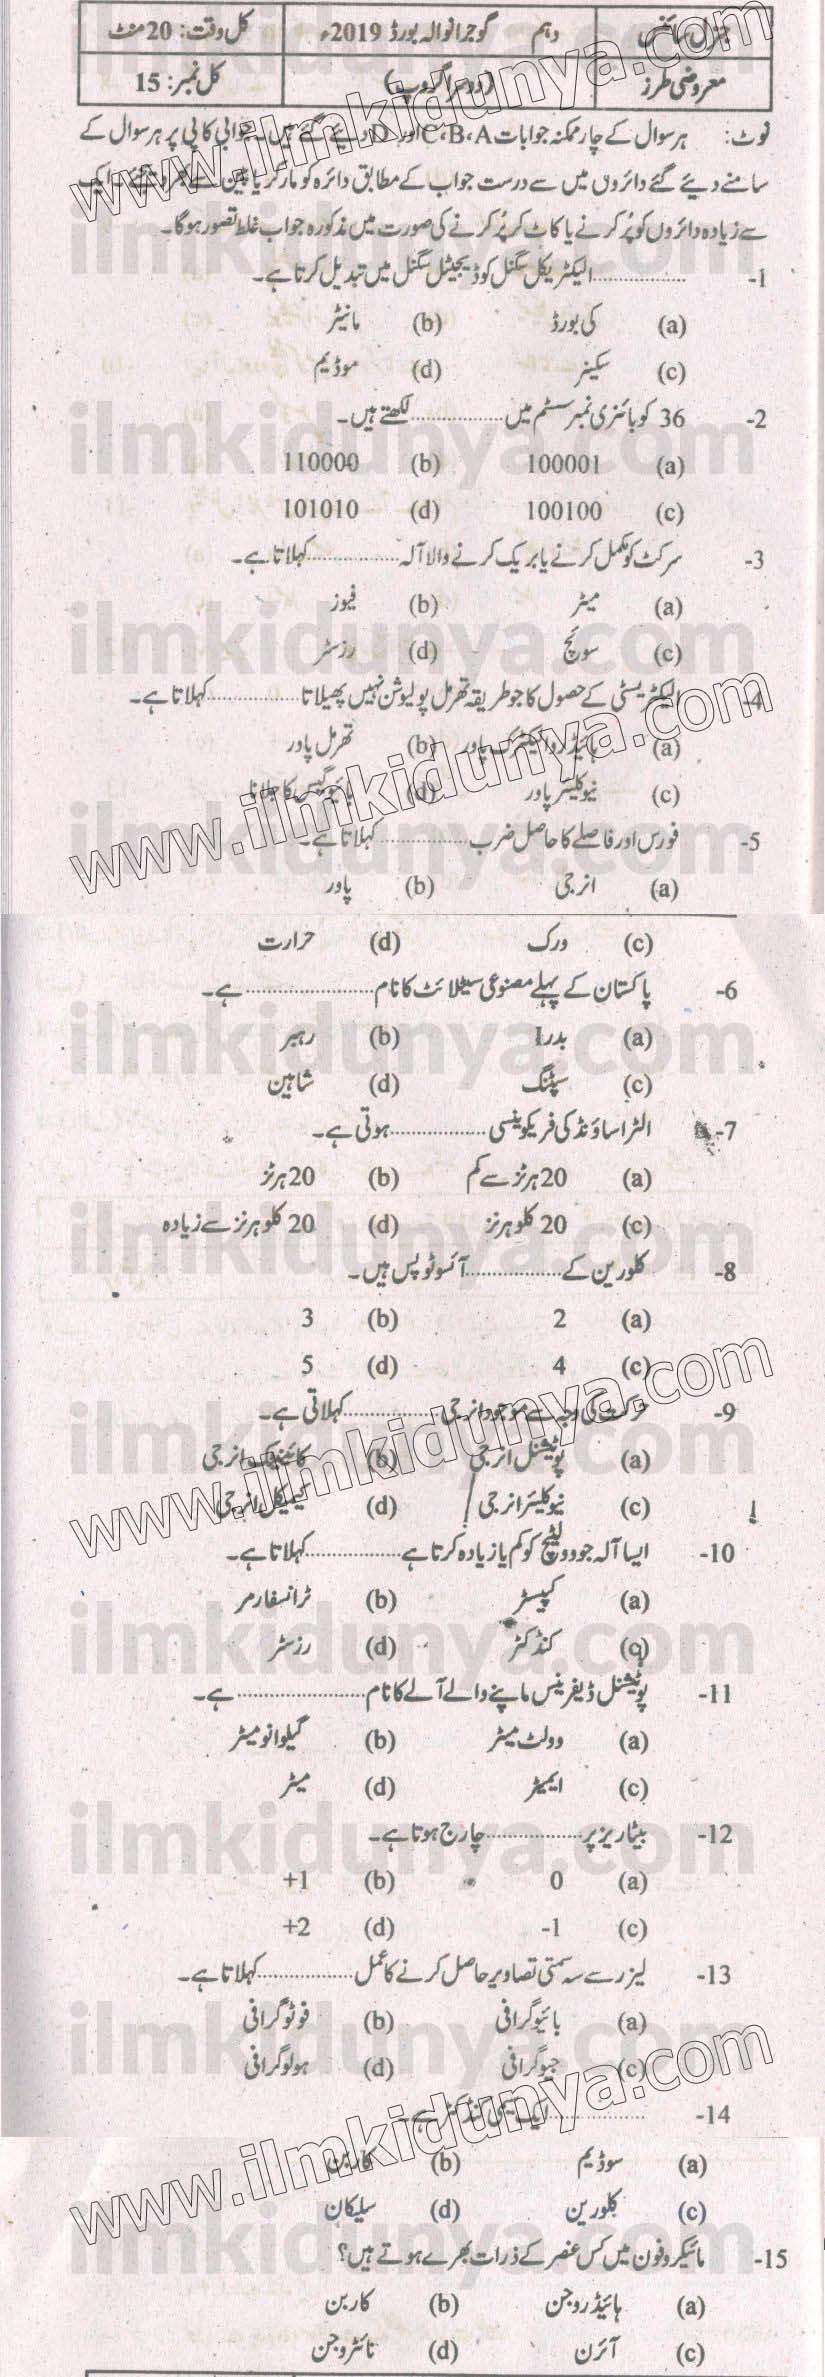 جنرل سائنس دہم گوجرانوالہ بورڈ 2019ء کل وقت: 20 منٹ
معروضی طرز (دوسرا گروپ) کل نمبر: 15
نوٹ: ہر سوال کے چار ممکنہ جوابات C،B،A اور D دیئے گئے ہیں۔ جوابی کاپی پر ہر سوال کے
سامنے دیئے گئے دائروں میں سے درست جواب کے مطابق دائرہ کو مارکر یا پین سے بھر دیجئے۔ ایک
سے زیادہ دائروں کو پُر کرنے یا کاٹ کر پُر کرنے کی صورت میں مذکورہ جواب غلط تصور ہوگا۔
1- ............ الیکٹریکل سگنل کو ڈیجیٹل سگنل میں تبدیل کرتا ہے۔
(a) کی بورڈ (b) مانیٹر
(c) سکینر (d) موڈیم
2- 36 کو بائنری نمبر سسٹم میں ............ لکھتے ہیں۔
(a) 100001 (b) 110000
(c) 100100 (d) 101010
3- سرکٹ کو مکمل کرنے یا بریک کرنے والا آلہ ............ کہلاتا ہے۔
(a) میٹر (b) فیوز
(c) سوئچ (d) رزسٹر
4- الیکٹریسٹی کے حصول کا جو طریقہ تھرمل پولیوشن نہیں پھیلاتا ............ کہلاتا ہے۔
(a) ہائیڈرو الیکٹرک پاور (b) تھرمل پاور
(c) نیوکلیئر پاور (d) بائیوگیس کا جلانا
5- فورس اور فاصلے کا حاصل ضرب ............ کہلاتا ہے۔
(a) انرجی (b) پاور
(c) ورک (d) حرارت
6- پاکستان کے پہلے مصنوعی سیٹلائٹ کا نام ............ ہے۔
(a) بدرI (b) رہبر
(c) سپٹنگ (d) شاہین
7- الٹراساؤنڈ کی فریکوینسی ............ ہوتی ہے۔
(a) 20 ہرٹز سے کم (b) 20 ہرٹز
(c) 20 کلو ہرٹز (d) 20 کلو ہرٹز سے زیادہ
8- کلورین کے ............ آئسوٹوپس ہیں۔
(a) 2 (b) 3
(c) 4 (d) 5
9- حرکت کی وجہ سے موجود انرجی ............ کہلاتی ہے۔
(a) پوٹینشل انرجی (b) کائینیٹک انرجی
(c) نیوکلیئر انرجی (d) کیمیکل انرجی
10- ایسا آلہ جو وولٹیج کو کم یا زیادہ کرتا ہے ............ کہلاتا ہے۔
(a) کپیسٹر (b) ٹرانسفارمر
(c) کنڈکٹر (d) رزسٹر
11- پوٹینشل ڈیفرینس ماپنے والے آلے کا نام ............ ہے۔
(a) وولٹ میٹر (b) گیلوانومیٹر
(c) ایمیٹر (d) میٹر
12- بیٹا ریز پر ............ چارج ہوتا ہے۔
(a) 0 (b) +1
(c) -1 (d) +2
13- لیزر سے سہ سمتی تصاویر حاصل کرنے کا عمل ............ کہلاتا ہے۔
(a) بائیوگرافی (b) فوٹوگرافی
(c) جیوگرافی (d) ہولوگرافی
14- ............ ایک سیمی کنڈکٹر ہے۔
(a) سوڈیم (b) کاربن
(c) کلورین (d) سلیکان
15- مائیکروفون میں کس عنصر کے ذرات بھرے ہوتے ہیں؟
(a) ہائیڈروجن (b) کاربن
(c) آئرن (d) نائٹروجن
www.ilmkidunya.com
ilmkidunya.com